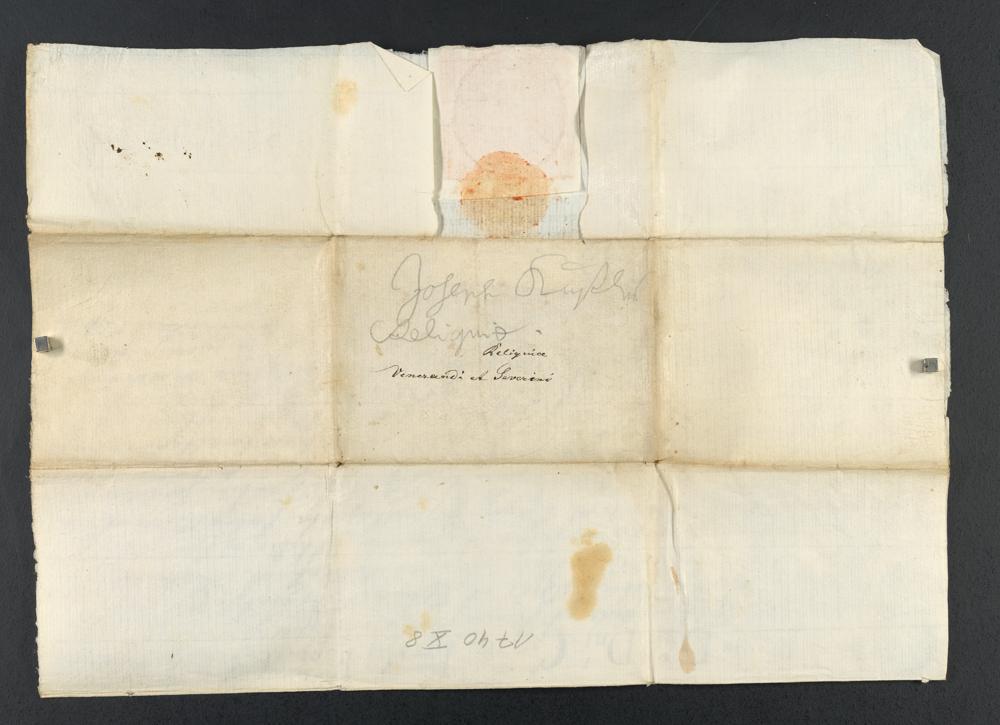 Joseph
Reliquiæ
Reliquiae
Venerandi et Severini
1740 X 8